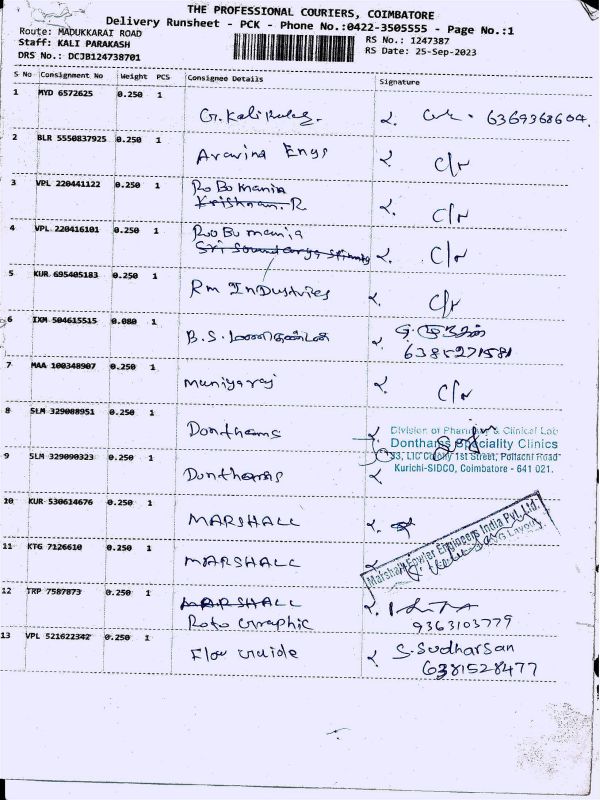 THE PROFESSIONAL COURIERS, COIMBATORE
Delivery Runsheet - PCK - Phone No.:0422-3505555 - Page No.:1
Route: MADUKKARAI ROAD
RS No.: 1247387
Staff: KALI PARAKASH
RS Date: 25-Sep-2023
DRS No.: DCJB124738701
S No Consignment No Weight PCS Consignee Details Signature
1 MYD 6572625 0.250 1
G. 6369368604.
2 BLR 5550837925 0.250 1
Aravind Engs C/r
3 VPL 220441122 0.250 1 RoBomania
Krishnan.R C/r
4 VPL 220416101 0.250 1 RooBomania
Sri C/r
5 KUR 695405183 0.250 1
Rm InDustries C/r
6 IXM 504615515 0.080 1
B.S. மணிகண்டன்
6385271581
7 MAA 100348907 0.250 1
muniyaraj C/r
8 SLM 329088951 0.250 1
Donthams
Division of Pharmacy & Clinical Lab
Donthams Speciality Clinics
33, LIC Colony 1st Street, Pollachi Road
Kurichi-SIDCO, Coimbatore - 641 021.
9 SLM 329090323 0.250 1
Donthams
10 KUR 530614676 0.250 1
MARSHALL
11 KTG 7126610 0.250 1
MARSHALL
Marshall Fowler Engineers India Pvt. Ltd.
12 TRP 7587873 0.250 1
MARSHALL
Roto Graphic 9363103779
13 VPL 521622342 0.250 1
Flow Guide S. Sudharsan
6381528477